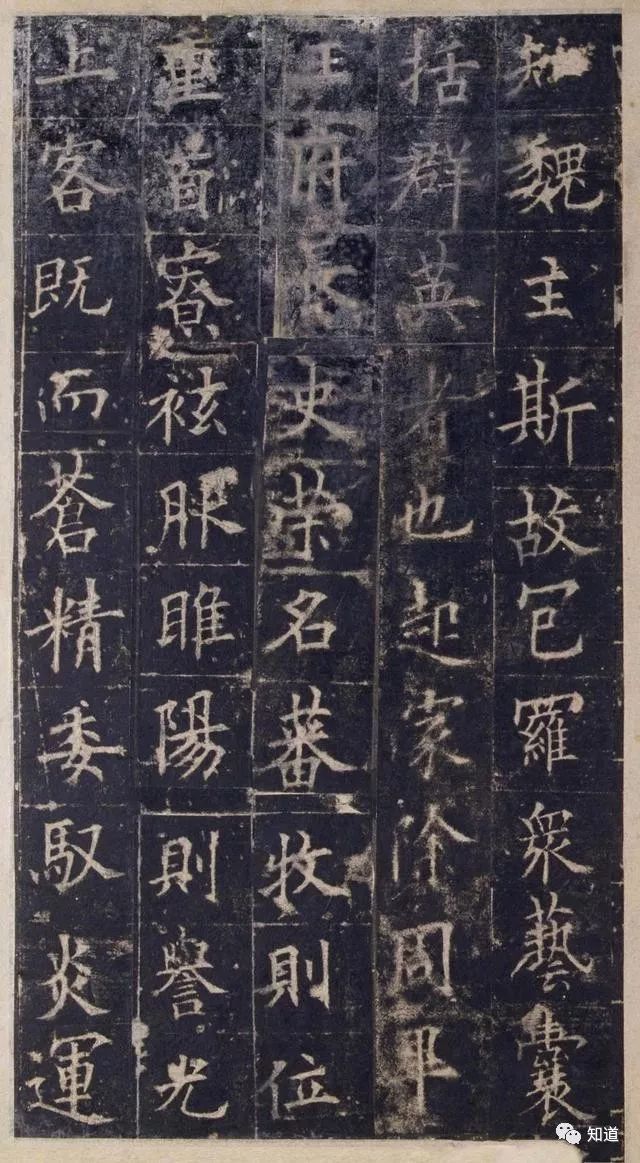 知魏主斯故包羅衆藝囊
括群英者也起家除周畢
王府長史榮名蕃牧則位
重首寮袨服睢陽則譽光
上客既而蒼精委馭炎運
知道